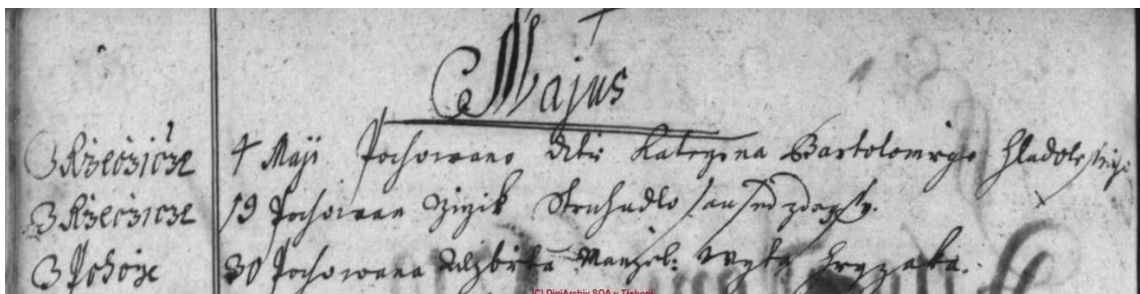 Majus
Z Rzeczicze 4 Maji Pochowano dite Katerzina Bartolomirge
Z Rzeczicze 19 Pochowan Zizik Struhadlo saused zdagssy.
Z Pohorze 30 Pochowana Alzbieta Manzel: Wyta Hryzaka.
(C) DigiArchiv SOA v Třeboni